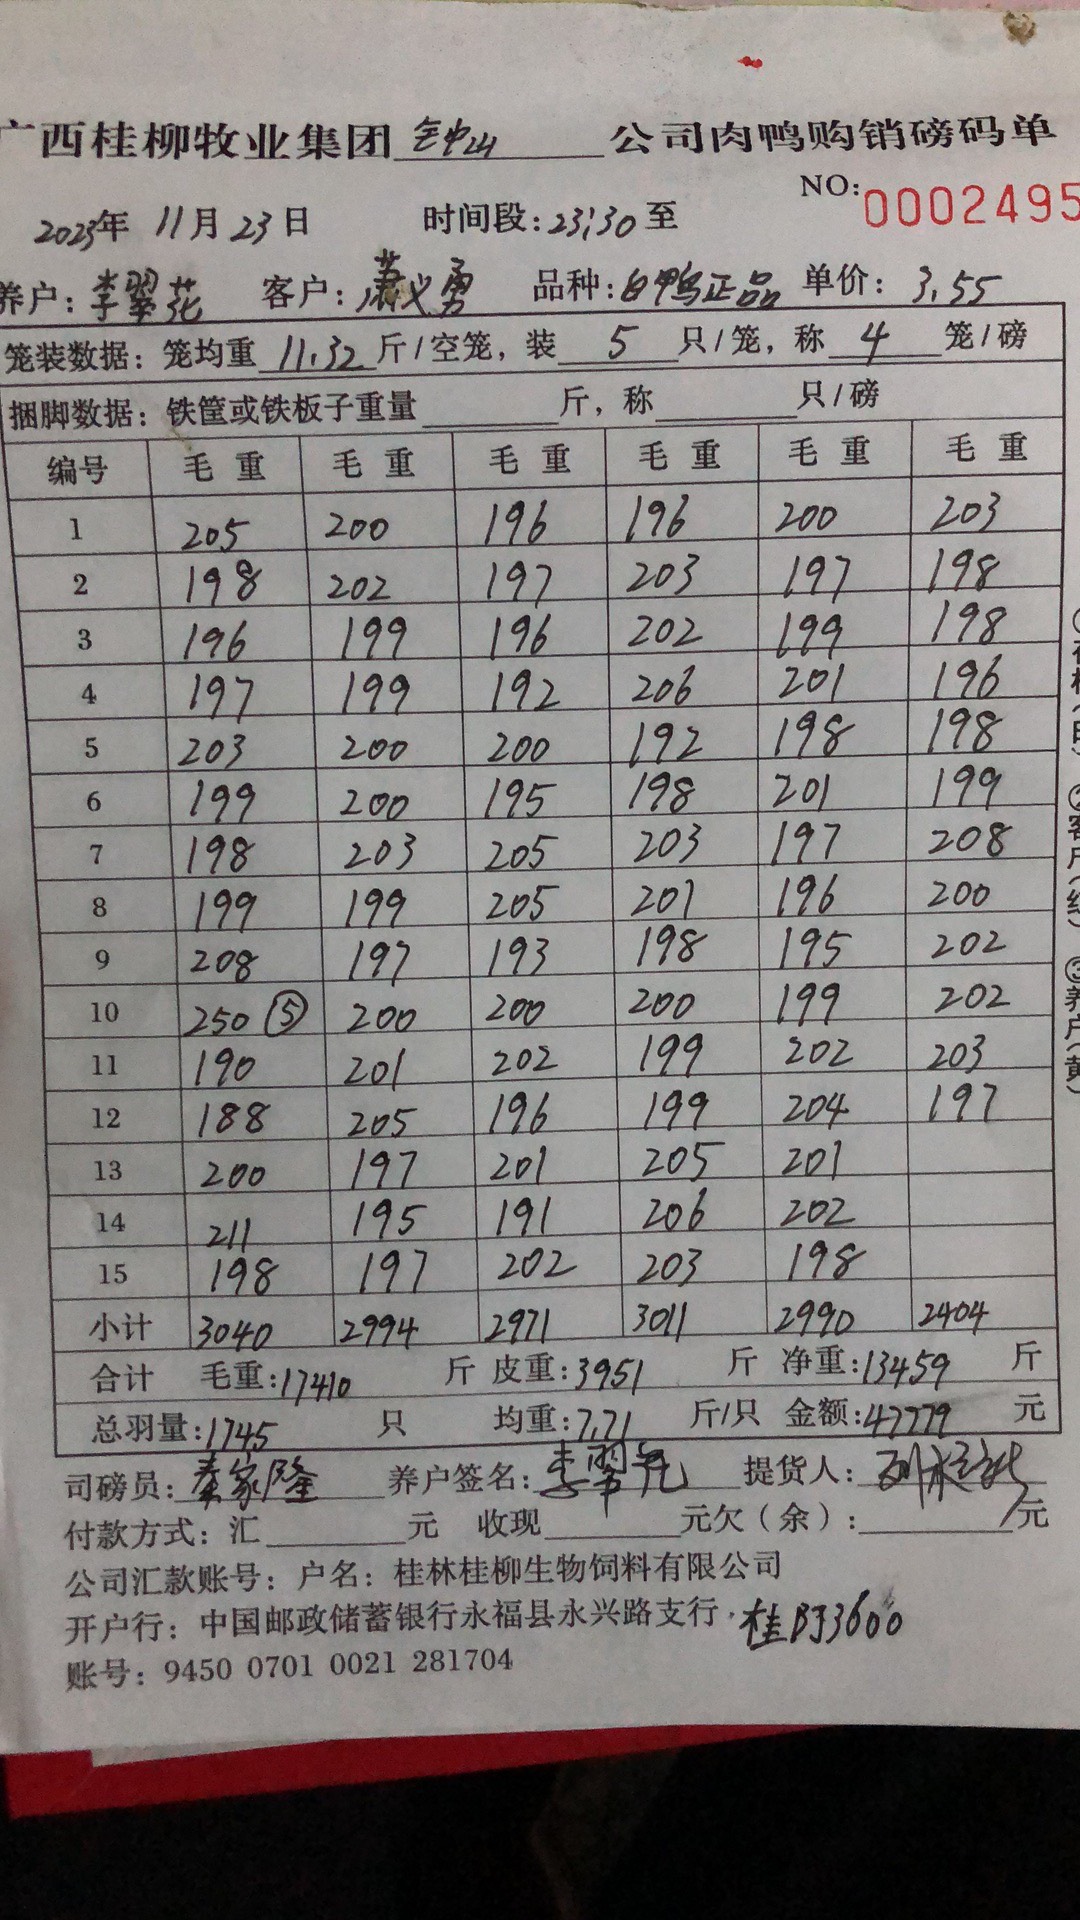 广西桂柳牧业集团钟山公司肉鸭购销磅码单
NO:0002495
2023年 11月23日 时间段:23:30至
养户:李翠花 客户:萧义勇 品种:白鸭正品 单价:3.55
笼装数据:笼均重 11.32 斤/空笼,装 5 只/笼,称 4 笼/磅
捆脚数据:铁筐或铁板子重量 斤,称 只/磅
编号 毛重 毛重 毛重 毛重 毛重 毛重
1 205 200 196 196 200 203
2 198 202 197 203 197 198
3 196 199 196 202 199 198
4 197 199 192 206 201 196
5 203 200 200 192 198 198
6 199 200 195 198 201 199
7 198 203 205 203 197 208
8 199 199 205 201 196 200
9 208 197 193 198 195 202
10 250⑤ 200 200 200 199 202
11 190 201 202 199 202 203
12 188 205 196 199 204 197
13 200 197 201 205 201
14 211 195 191 206 202
15 198 197 202 203 198
小计 3040 2994 2971 3011 2990 2404
合计 毛重:17410 斤 皮重:3951 斤 净重:13459 斤
总羽量:1745 只 均重:7.71 斤/只 金额:47779 元
司磅员:秦家隆 养户签名:李翠花 提货人:
付款方式:汇 元 收现 元欠(余): 元
公司汇款账号:户名:桂林桂柳生物饲料有限公司
开户行:中国邮政储蓄银行永福县永兴路支行
桂 3600
账号:9450 0701 0021 281704
②客户(红) ③养户(黄)